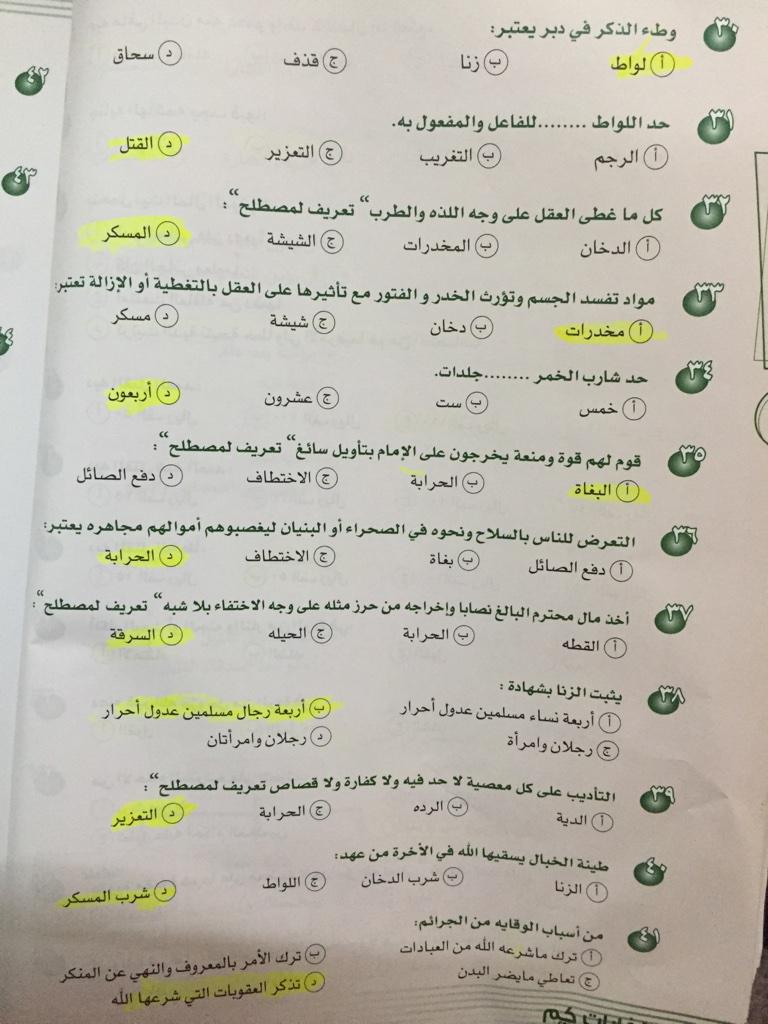 ٣٠ وطء الذكر في دبر يعتبر:
أ لواط ب زنا ج قذف د سحاق
٣١ حد اللواط ........للفاعل والمفعول به.
أ الرجم ب التغريب ج التعزير د القتل
٣٢ كل ما غطى العقل على وجه اللذه والطرب“ تعريف لمصطلح“:
أ الدخان ب المخدرات ج الشيشة د المسكر
٣٣ مواد تفسد الجسم وتؤرث الخدر و الفتور مع تأثيرها على العقل بالتغطية أو الإزالة تعتبر:
أ مخدرات ب دخان ج شيشة د مسكر
٣٤ حد شارب الخمر ........جلدات.
أ خمس ب ست ج عشرون د أربعون
٣٥ قوم لهم قوة ومنعة يخرجون على الإمام بتأويل سائغ“ تعريف لمصطلح“:
أ البغاة ب الحرابة ج الاختطاف د دفع الصائل
٣٦ التعرض للناس بالسلاح ونحوه في الصحراء أو البنيان ليغصبوهم أموالهم مجاهره يعتبر:
أ دفع الصائل ب بغاة ج الاختطاف د الحرابة
٣٧ أخذ مال محترم البالغ نصابا وإخراجه من حرز مثله على وجه الاختفاء بلا شبه“ تعريف لمصطلح“:
أ القطه ب الحرابة ج الحيله د السرقة
٣٨ يثبت الزنا بشهادة :
أ أربعة نساء مسلمين عدول أحرار ب أربعة رجال مسلمين عدول أحرار
ج رجلان وامرأة د رجلان وامرأتان
٣٩ التأديب على كل معصية لا حد فيه ولا كفارة ولا قصاص تعريف لمصطلح“:
أ الدية ب الرده ج الحرابة د التعزير
٤٠ طينة الخبال يسقيها الله في الأخرة من عهد:
أ الزنا ب شرب الدخان ج اللواط د شرب المسكر
٤١ من أسباب الوقايه من الجرائم:
أ ترك ماشرعه الله من العبادات ب ترك الأمر بالمعروف والنهي عن المنكر
ج تعاطي مايضر البدن د تذكر العقوبات التي شرعها الله
٤٢
٤٣